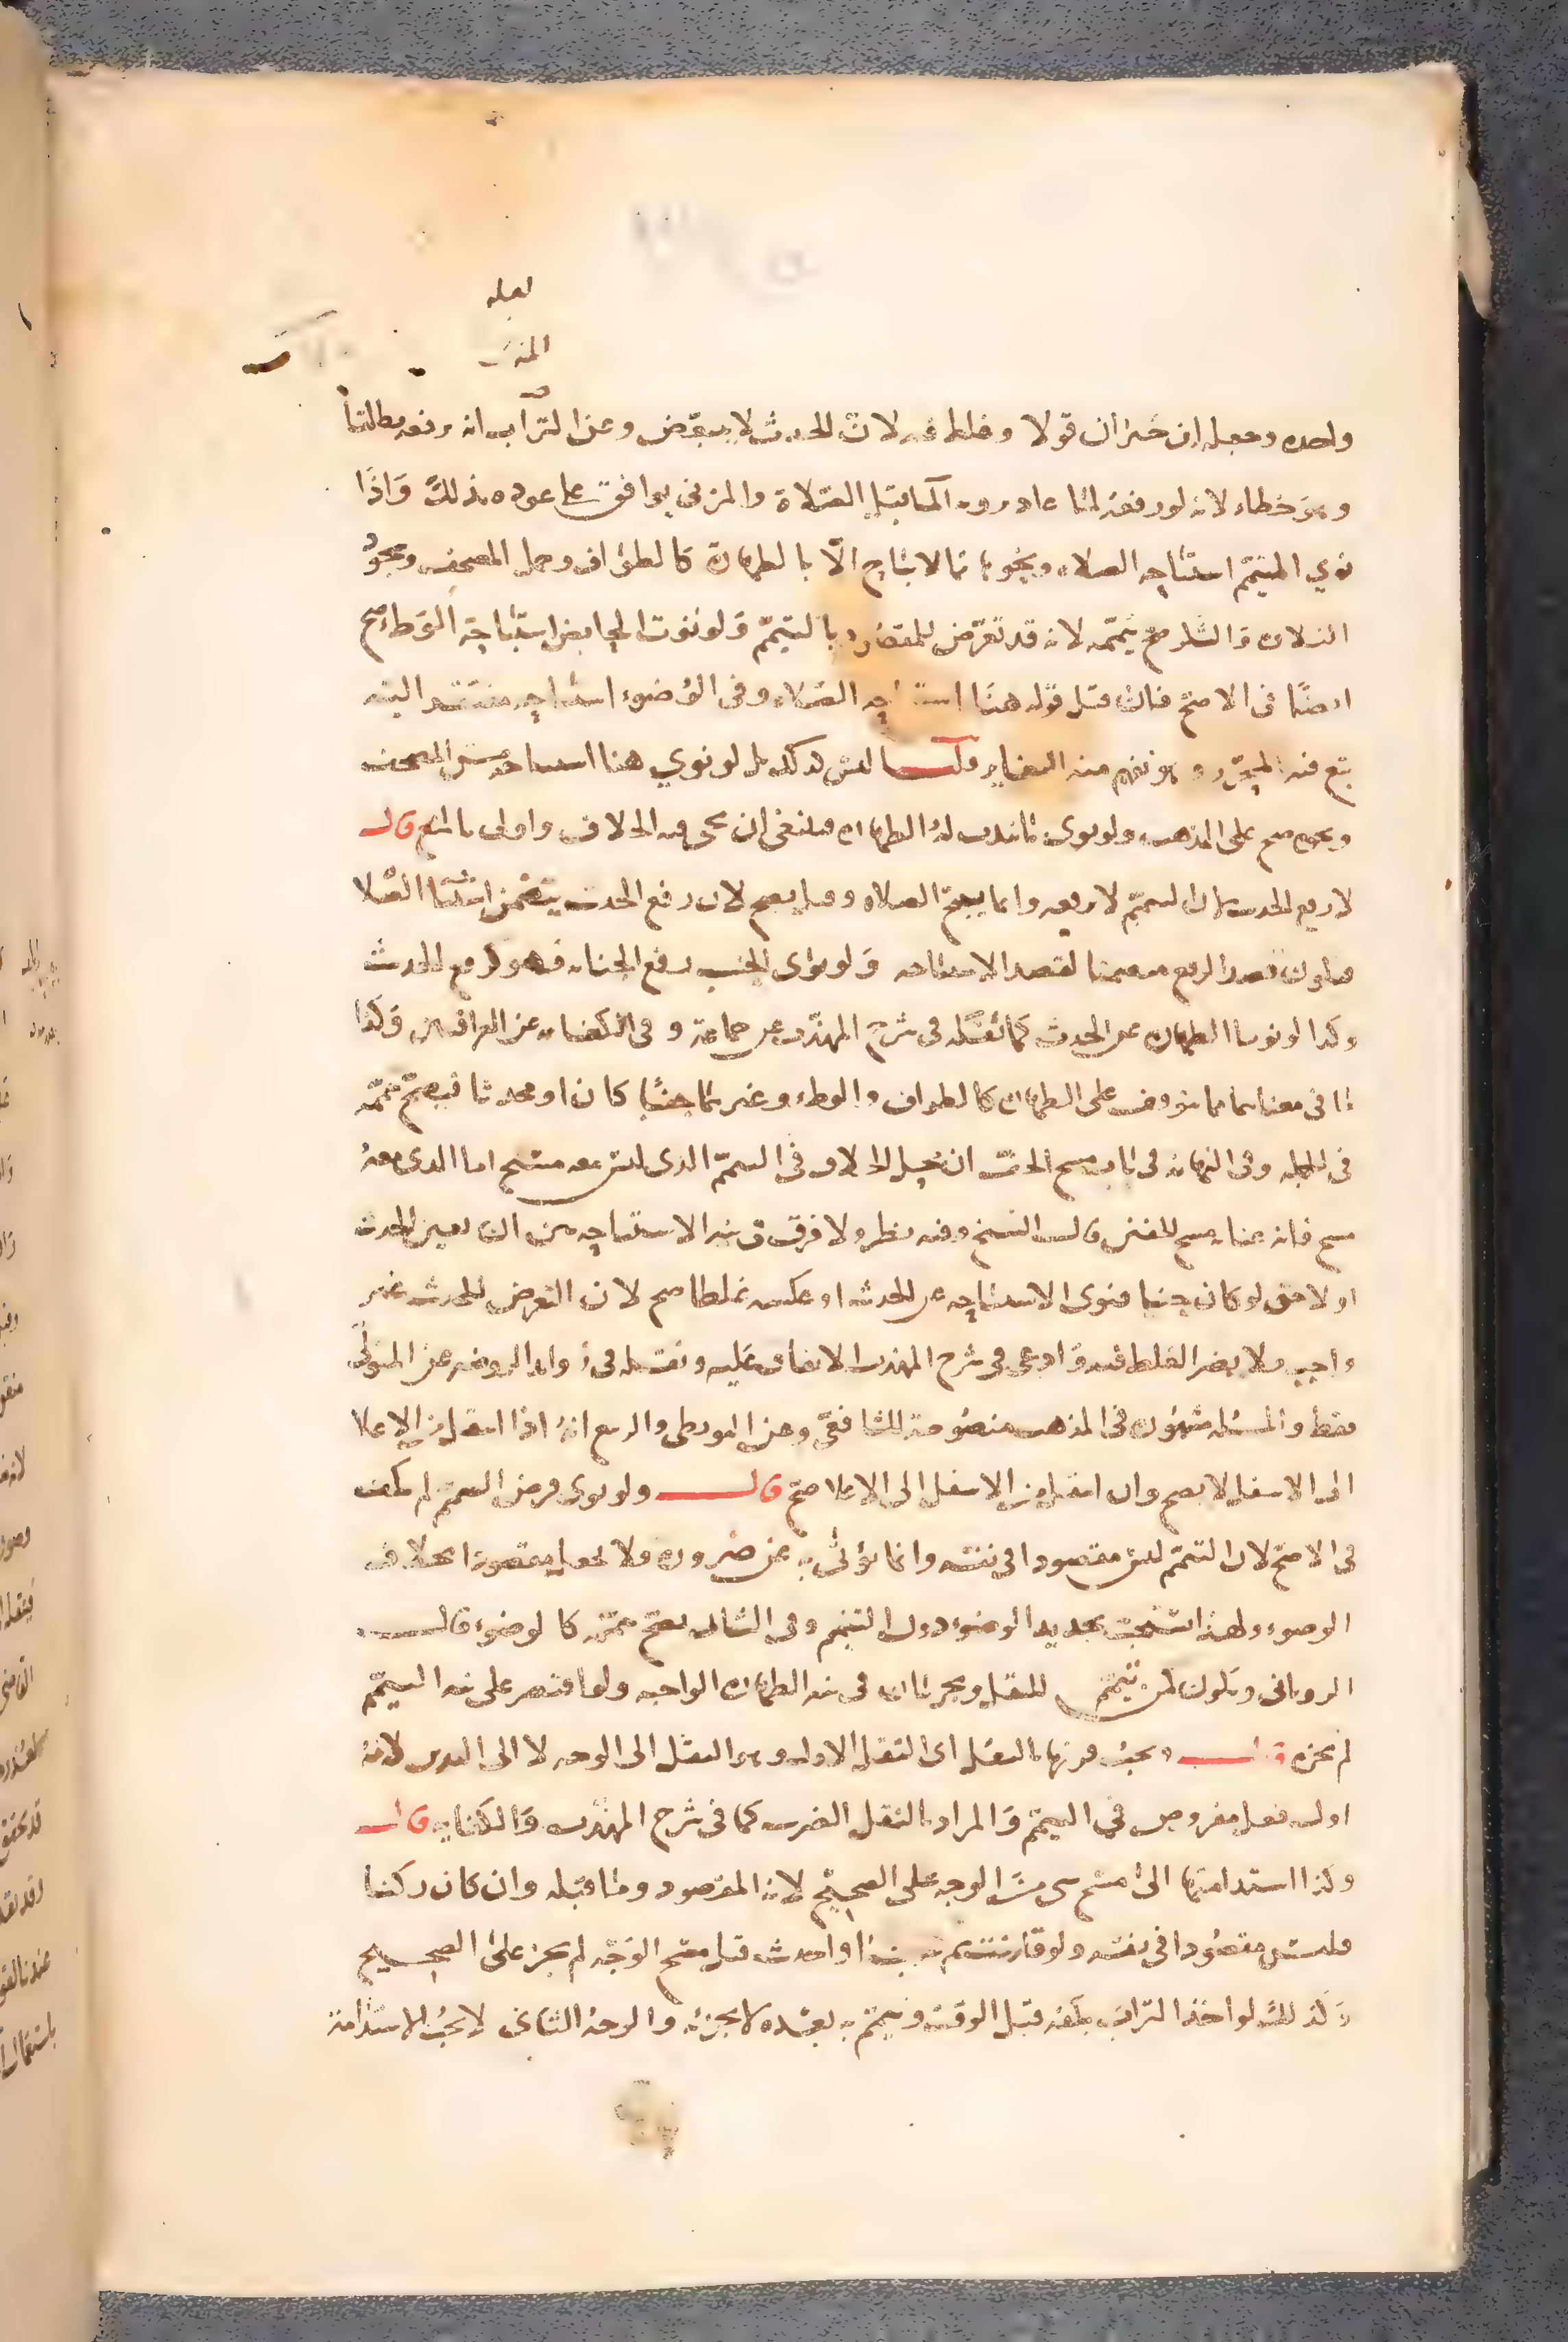 لعله
المزني
واحده وجعله ابن خيران قولا وغلط فيه لان الحدث لا يتبعض وعن التراب انه رفعه مطلقا
وهو خطاء لانه لو رفعه لما عاد بروية الما قبل الصلاة والمزني يوافق على عوده بذلك واذا
نوي المتيمم استباحه الصلاه ونحوها مما لا يباح الا بالطهارة كالطواف وحمل المصحف وسجود
التلاوه والشكر صح تيممه لانه قد تعرض للمقصود بالتيمم ولو نوت الحايض استباحة الوطء صح
ايضا في الاصح فان قيل قوله هنا استباحه الصلاه وفي الوضوء استباحه مفتقر اليه
تبع فيه المحرر وهو يفهم منه التغاير قلت ليس كذلك بل لو نوي هنا استباحه مس المصحف
ونحوه صح على المذهب ولو نوى ما يندب له الطهاره فينبغي ان يجي فيه الخلاف واولى بالمنع قال
لا رفع الحدث لان التيمم لا يرفعه وانما يبيح الصلاه وقيل يصح لان رفع الحدث يتضمن استباحة الصلا
فيكون قصد الرفع متضمنا لقصد الاستباحه ولو نوى الجنب رفع الجنابه فهو كرفع الحدث
وكذا لو نويا الطهاره عن الحدث كما نقله في شرح المهذب عن جماعة وفي الكفايه عن العراقيين وكذا
ما في معناهما مما يتوقف على الطهاره كالطواف والوطء وغيرهما جنبا كان او محدثا فيصح تيممه
في الجمله وفي النهايه في باب مسح الخف ان محل الخلاف في التيمم الذى ليس معه مسح اما الذى معه
مسح فانه بمثابه مسح الخف قال الشيخ وفيه نظر ولا فرق في نيه الاستباحه بين ان يعين الحدث
او لا حتى لو كان جنبا فنوى الاستباحه عن الحدث او عكسه غلطا صح لان التعرض للحدث غير
واجب فلا يضر الغلط فيه وادعى في شرح المهذب الاتفاق عليه ونقله في زوايد الروضه عن المتولي
فقط والمسئله مشهوره في المذهب منصوصة للشافعي وعن البويطي والربيع انه اذا انتقل من الاعلا
الى الاسفل لا يصح وان انتقل من الاسفل الى الاعلا صح قال ولو نوى فرض التيمم لم يكف
في الاصح لان التيمم ليس مقصودا في نفسه وانما يؤتى به عن ضروره فلا يجعل مقصودا بخلاف
الوضوء ولهذا استحب تجديد الوضوء دون التيمم وفي الثاني يصح تيممه كالوضوء قال
الرويانى ويكون كمن تيمم للنفل ويجريان في نيه الطهاره الواجبه ولو اقتصر على نيه التيمم
لم يجزه قال ويجب قرنها بالنقل اى النقل الاول وهو النقل الى الوجه لا الى اليدين لانه
اول فعل مفروض في التيمم والمراد بالنقل الضرب كما في شرح المهذب والكفايه قال
وكذا استدامتها الى مسح شى من الوجه على الصحيح لانه المقصود وما قبله وان كان ركنا
فليس مقصودا في نفسه ولو او احدث قبل مسح الوجه لم يجز على الصحيح
وكذلك لو اخذ التراب بكفه قبل الوقت وتيمم به بعده لا يجزئه والوجه الثاني لا يجب الاستدامة